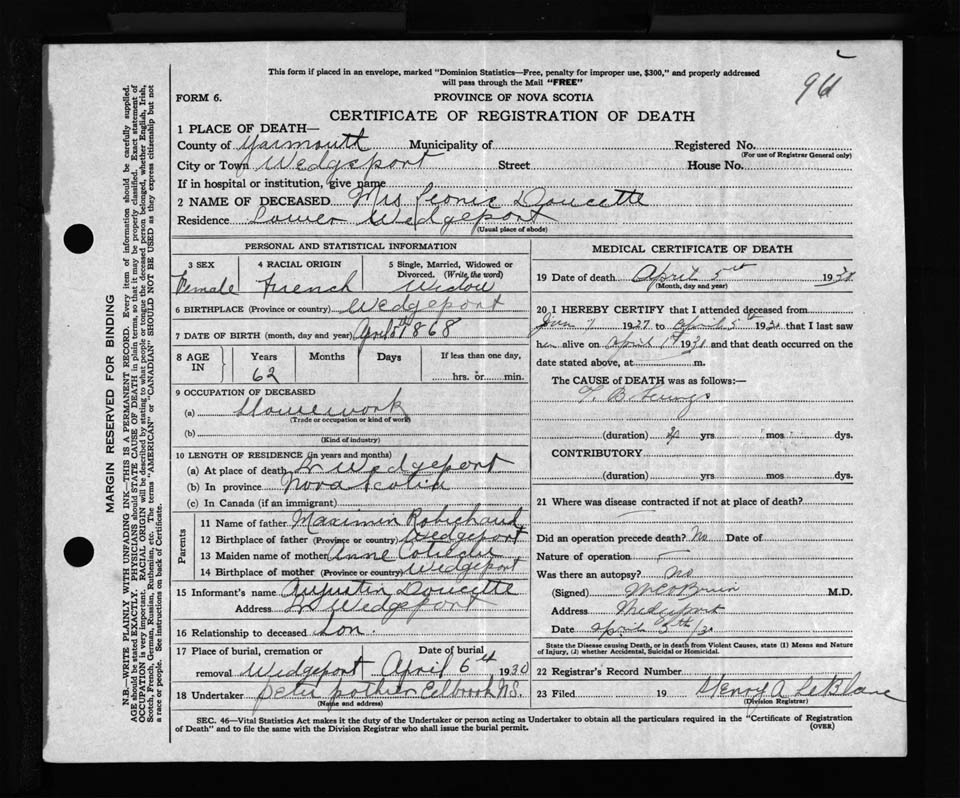 96
This form if placed in an envelope, marked "Dominion Statistics—Free, penalty for improper use, $300," and properly addressed
will pass through the Mail "FREE"
FORM 6.
PROVINCE OF NOVA SCOTIA
CERTIFICATE OF REGISTRATION OF DEATH
1 PLACE OF DEATH—
County of Yarmouth Municipality of Registered No.
(For use of Registrar General only)
City or Town Wedgeport Street House No.
If in hospital or institution, give name
2 NAME OF DECEASED Mrs Leonie Doucette
Residence Lower Wedgeport
(Usual place of abode)
PERSONAL AND STATISTICAL INFORMATION
3 SEX 4 RACIAL ORIGIN 5 Single, Married, Widowed or
Divorced. (Write the word)
Female French Widow
6 BIRTHPLACE (Province or country) Wedgeport
7 DATE OF BIRTH (month, day and year) 1868
8 AGE IN Years Months Days If less than one day,
62 hrs. or min.
9 OCCUPATION OF DECEASED
(a) Housework
(Trade or occupation or kind of work)
(b)
(Kind of industry)
10 LENGTH OF RESIDENCE (in years and months)
(a) At place of death L Wedgeport
(b) In province Nova Scotia
(c) In Canada (if an immigrant)
Parents
11 Name of father Maximin Robichaud
12 Birthplace of father (Province or country) Wedgeport
13 Maiden name of mother Anne
14 Birthplace of mother (Province or country) Wedgeport
15 Informant's name Augustin Doucette
Address L Wedgeport
16 Relationship to deceased Son.
17 Place of burial, cremation or Date of burial
removal Wedgeport April 6th 1930
18 Undertaker Peter pothier Eelbrook N.S.
(Name and address)
MEDICAL CERTIFICATE OF DEATH
19 Date of death April 5 1930
(Month, day and year)
20 I HEREBY CERTIFY that I attended deceased from
1927 to April 5 1930 that I last saw
her alive on April 1st 1930 and that death occurred on the
date stated above, at m.
The CAUSE of DEATH was as follows:—
T. B. Lungs
(duration) yrs mos dys.
CONTRIBUTORY
(duration) yrs mos dys.
21 Where was disease contracted if not at place of death?
Did an operation precede death? No Date of
Nature of operation
Was there an autopsy? No
(Signed) M.D.
Address Wedgeport
Date April 5th/30
State the Disease causing Death, or in death from Violent Causes, state (1) Means and Nature
of Injury, (2) whether Accidental, Suicidal or Homicidal.
22 Registrar's Record Number
23 Filed 19 Henry A LeBlanc
(Division Registrar)
SEC. 46—Vital Statistics Act makes it the duty of the Undertaker or person acting as Undertaker to obtain all the particulars required in the "Certificate of Registration
of Death" and to file the same with the Division Registrar who shall issue the burial permit.
(OVER)
MARGIN RESERVED FOR BINDING
N.B.—WRITE PLAINLY WITH UNFADING INK—THIS IS A PERMANENT RECORD. Every item of information should be carefully supplied.
AGE should be stated EXACTLY. PHYSICIANS should STATE CAUSE OF DEATH in plain terms, so that it may be properly classified. Exact statement of
OCCUPATION is very important. RACIAL ORIGIN will be described by stating to what people or tongue the deceased person belonged, whether English, Irish,
Scotch, French, German, Russian, Ruthenian, etc. The terms "AMERICAN" or "CANADIAN" SHOULD NOT BE USED as they express citizenship but not
a race or people. See instructions on back of Certificate.